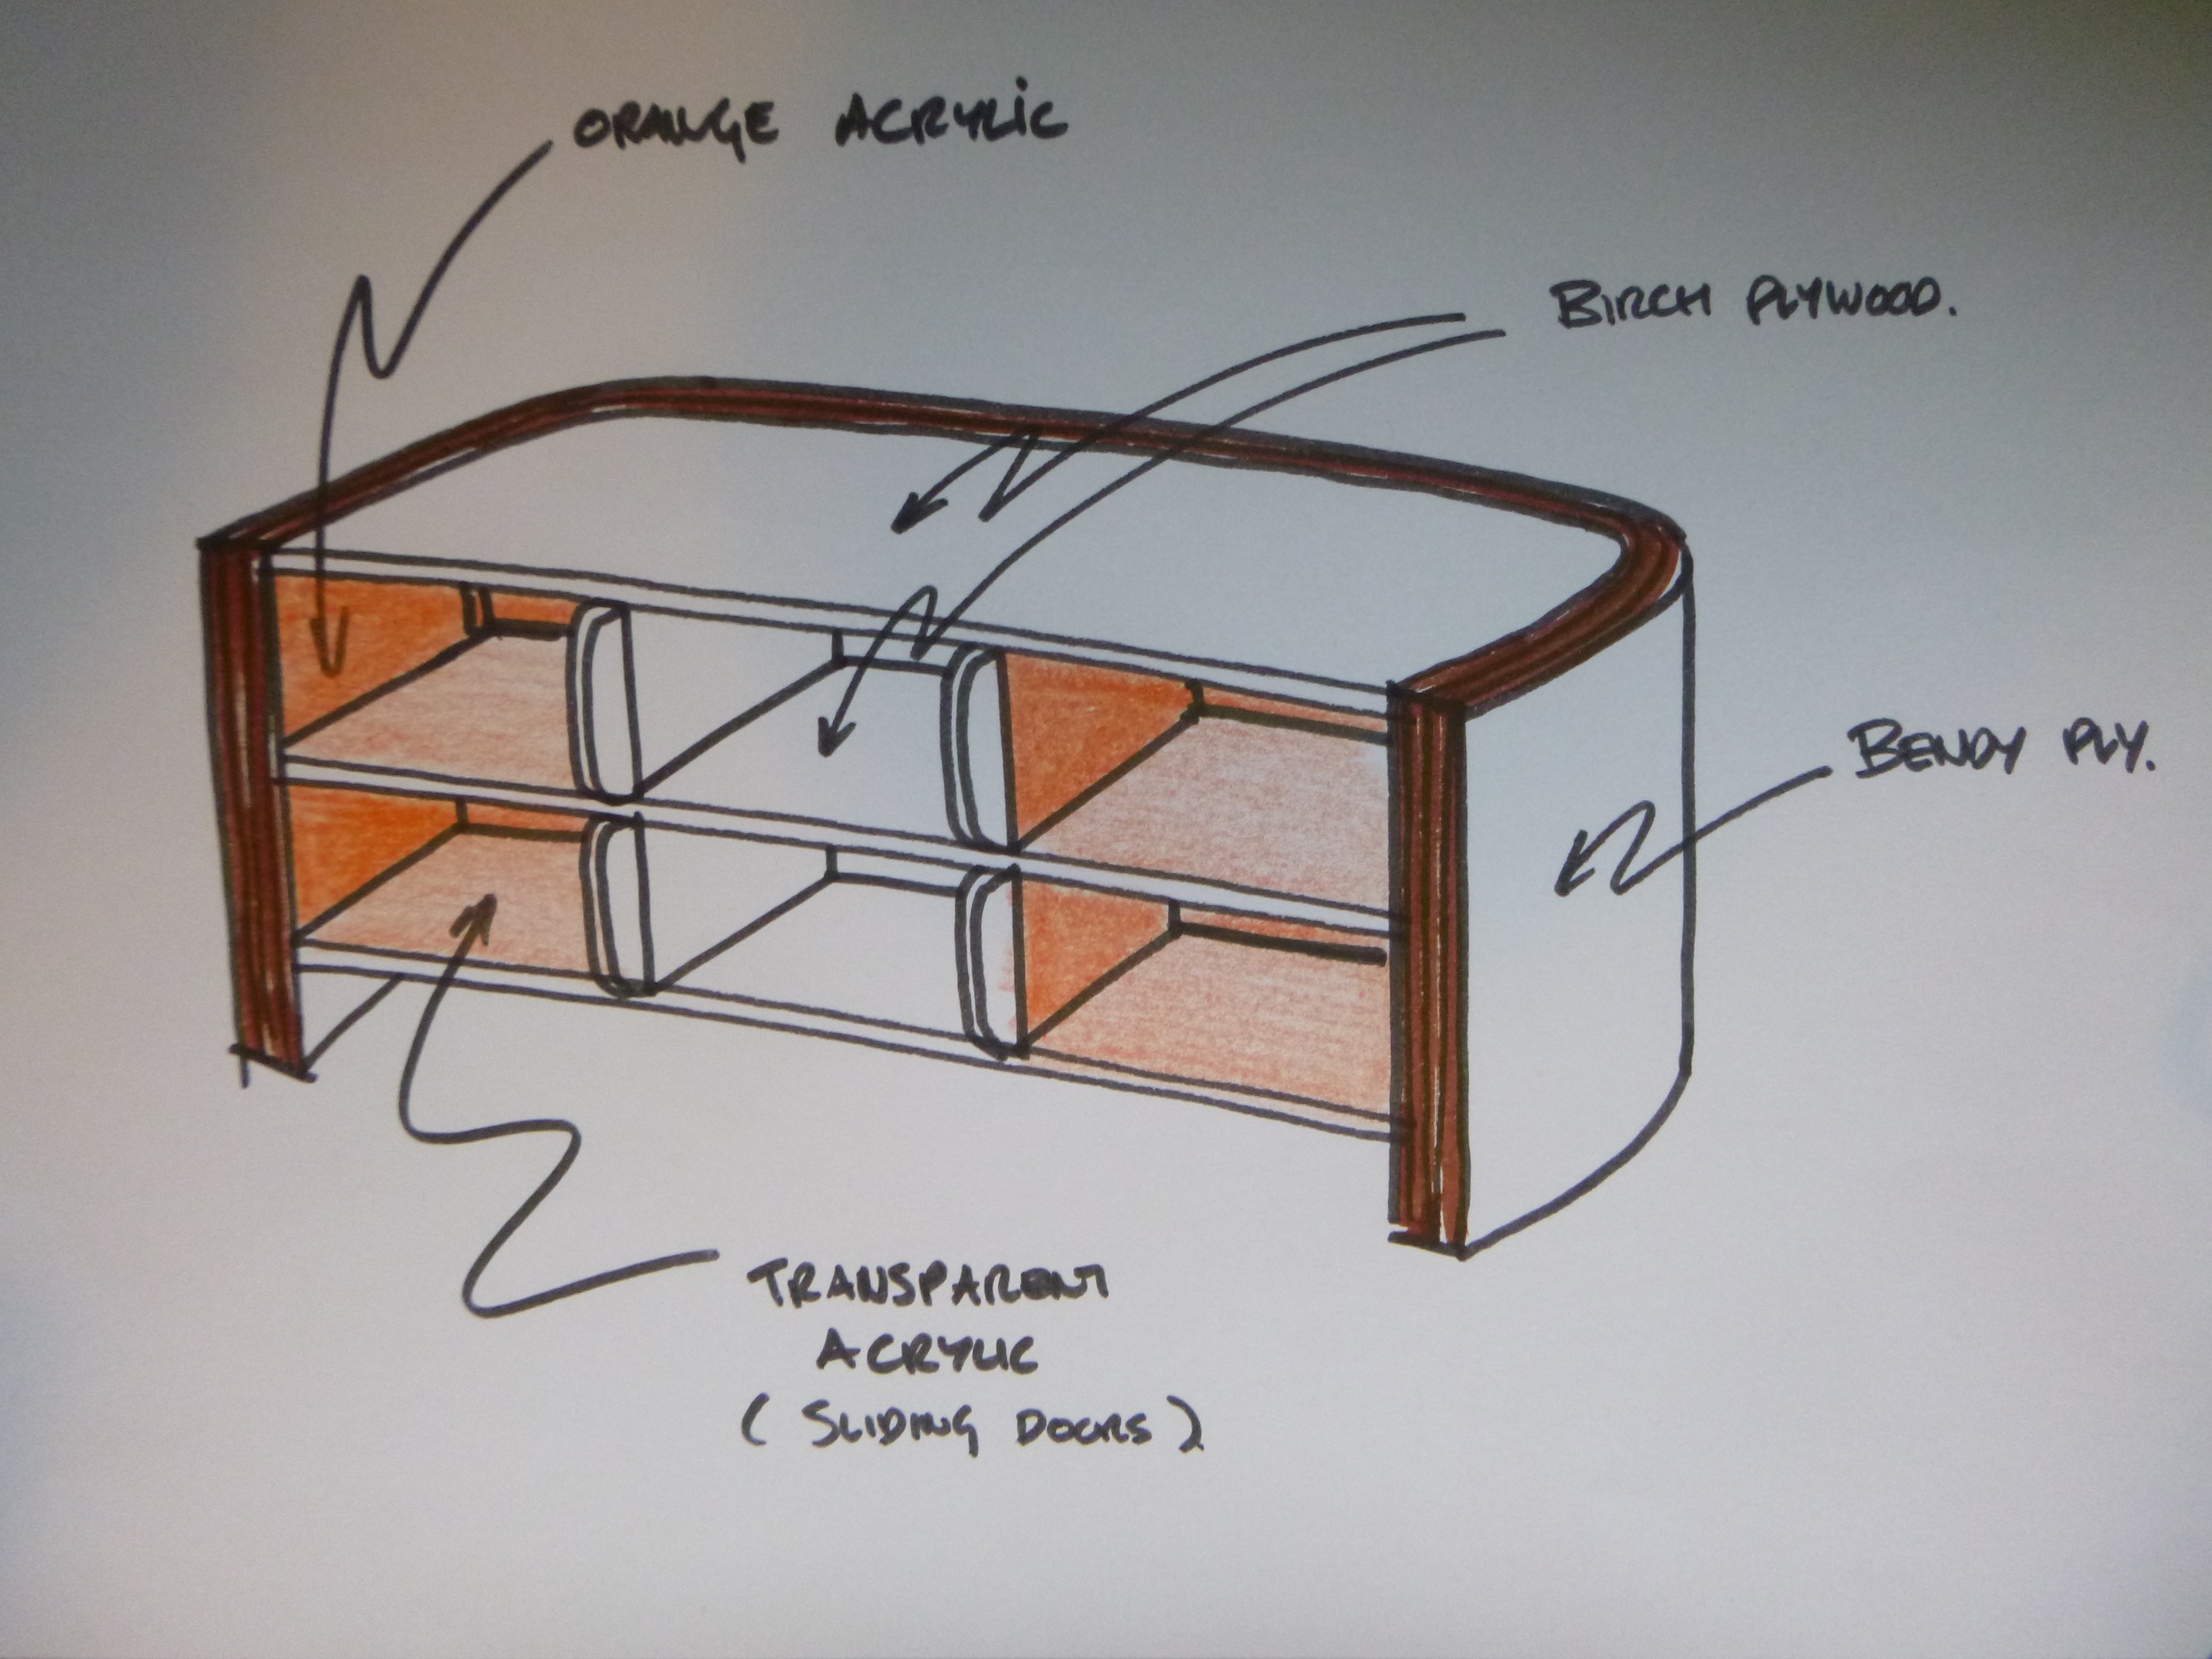 ORANGE ACRYLIC
BIRCH PLYWOOD.
BENDY PLY.
TRANSPARENT
ACRYLIC
( SLIDING DOORS )